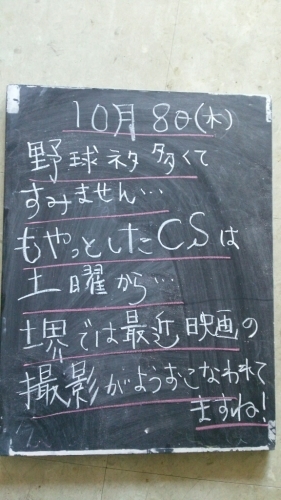 10月8日(木)
野球ネタ多くて
すみません…
もやっとしたCSは
土曜から…
堺では最近映画の
撮影がようおこなわれて
ますね!